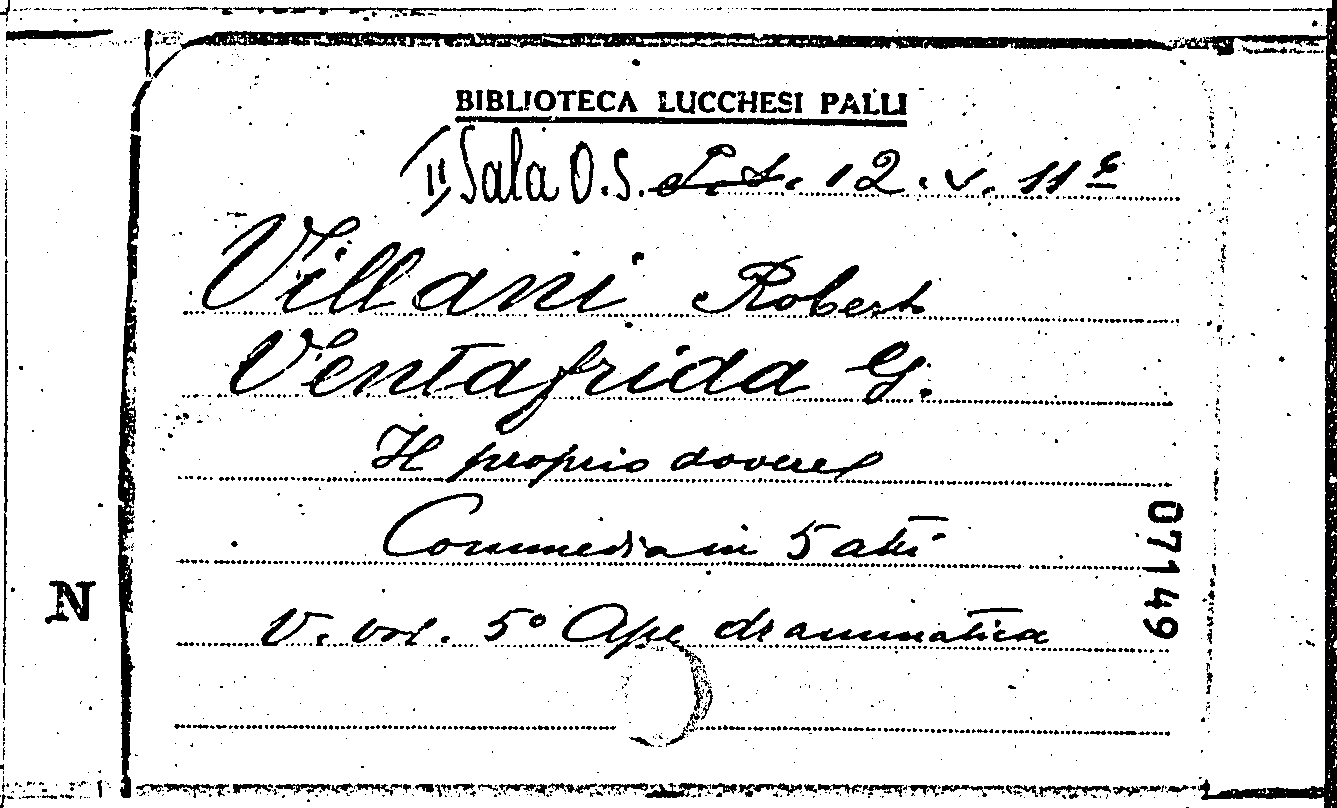 BIBLIOTECA LUCCHESI PALLI
II, Sala O.S. 12. V. 11
Villani Roberto
Ventafrida G.
Il proprio dovere
Commedia in 5 atti
V. vol. 5° Ape drammatica
N
07149